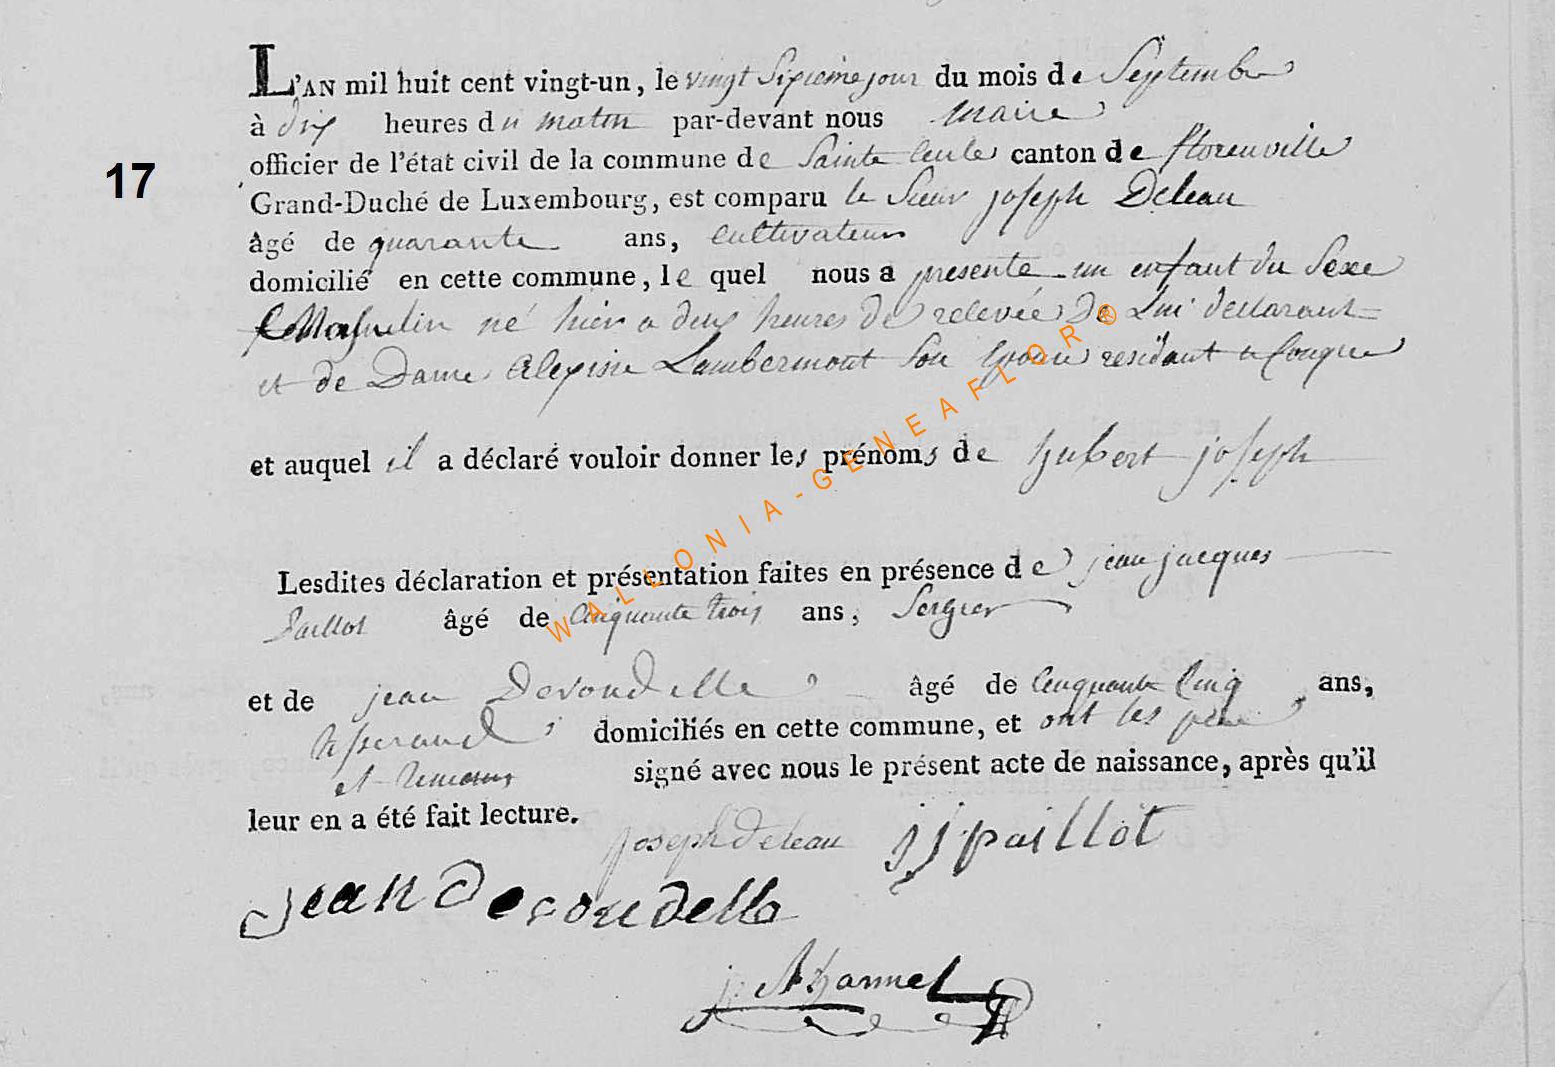 L'AN mil huit cent vingt-un, le vingt Sixieme jour du mois de Septembre
à dix heures du matin par-devant nous maire
officier de l'état civil de la commune de Sainte Cecile canton de florenville
17
Grand-Duché de Luxembourg, est comparu le Sieur joseph Deleau
âgé de quarante ans, cultivateur
domicilié en cette commune, le quel nous a presenté un enfant du Sexe
Masculin né hier a deux heures de relevée de Lui declarant
et de Dame Alexise Lambermont Son Epouse residant a
et auquel il a déclaré vouloir donner les prénoms de hubert joseph
Lesdites déclaration et présentation faites en présence de jean jacques
Paillot âgé de Cinquante trois ans, Sergier
et de jean Decoudelle âgé de Cinquante Cinq ans,
domiciliés en cette commune, et ont les pere
et temoins signé avec nous le présent acte de naissance, après qu'il
leur en a été fait lecture.
joseph Deleau jjpaillot
jean Decoudelle
WALLONIA-GENEAFLOR®